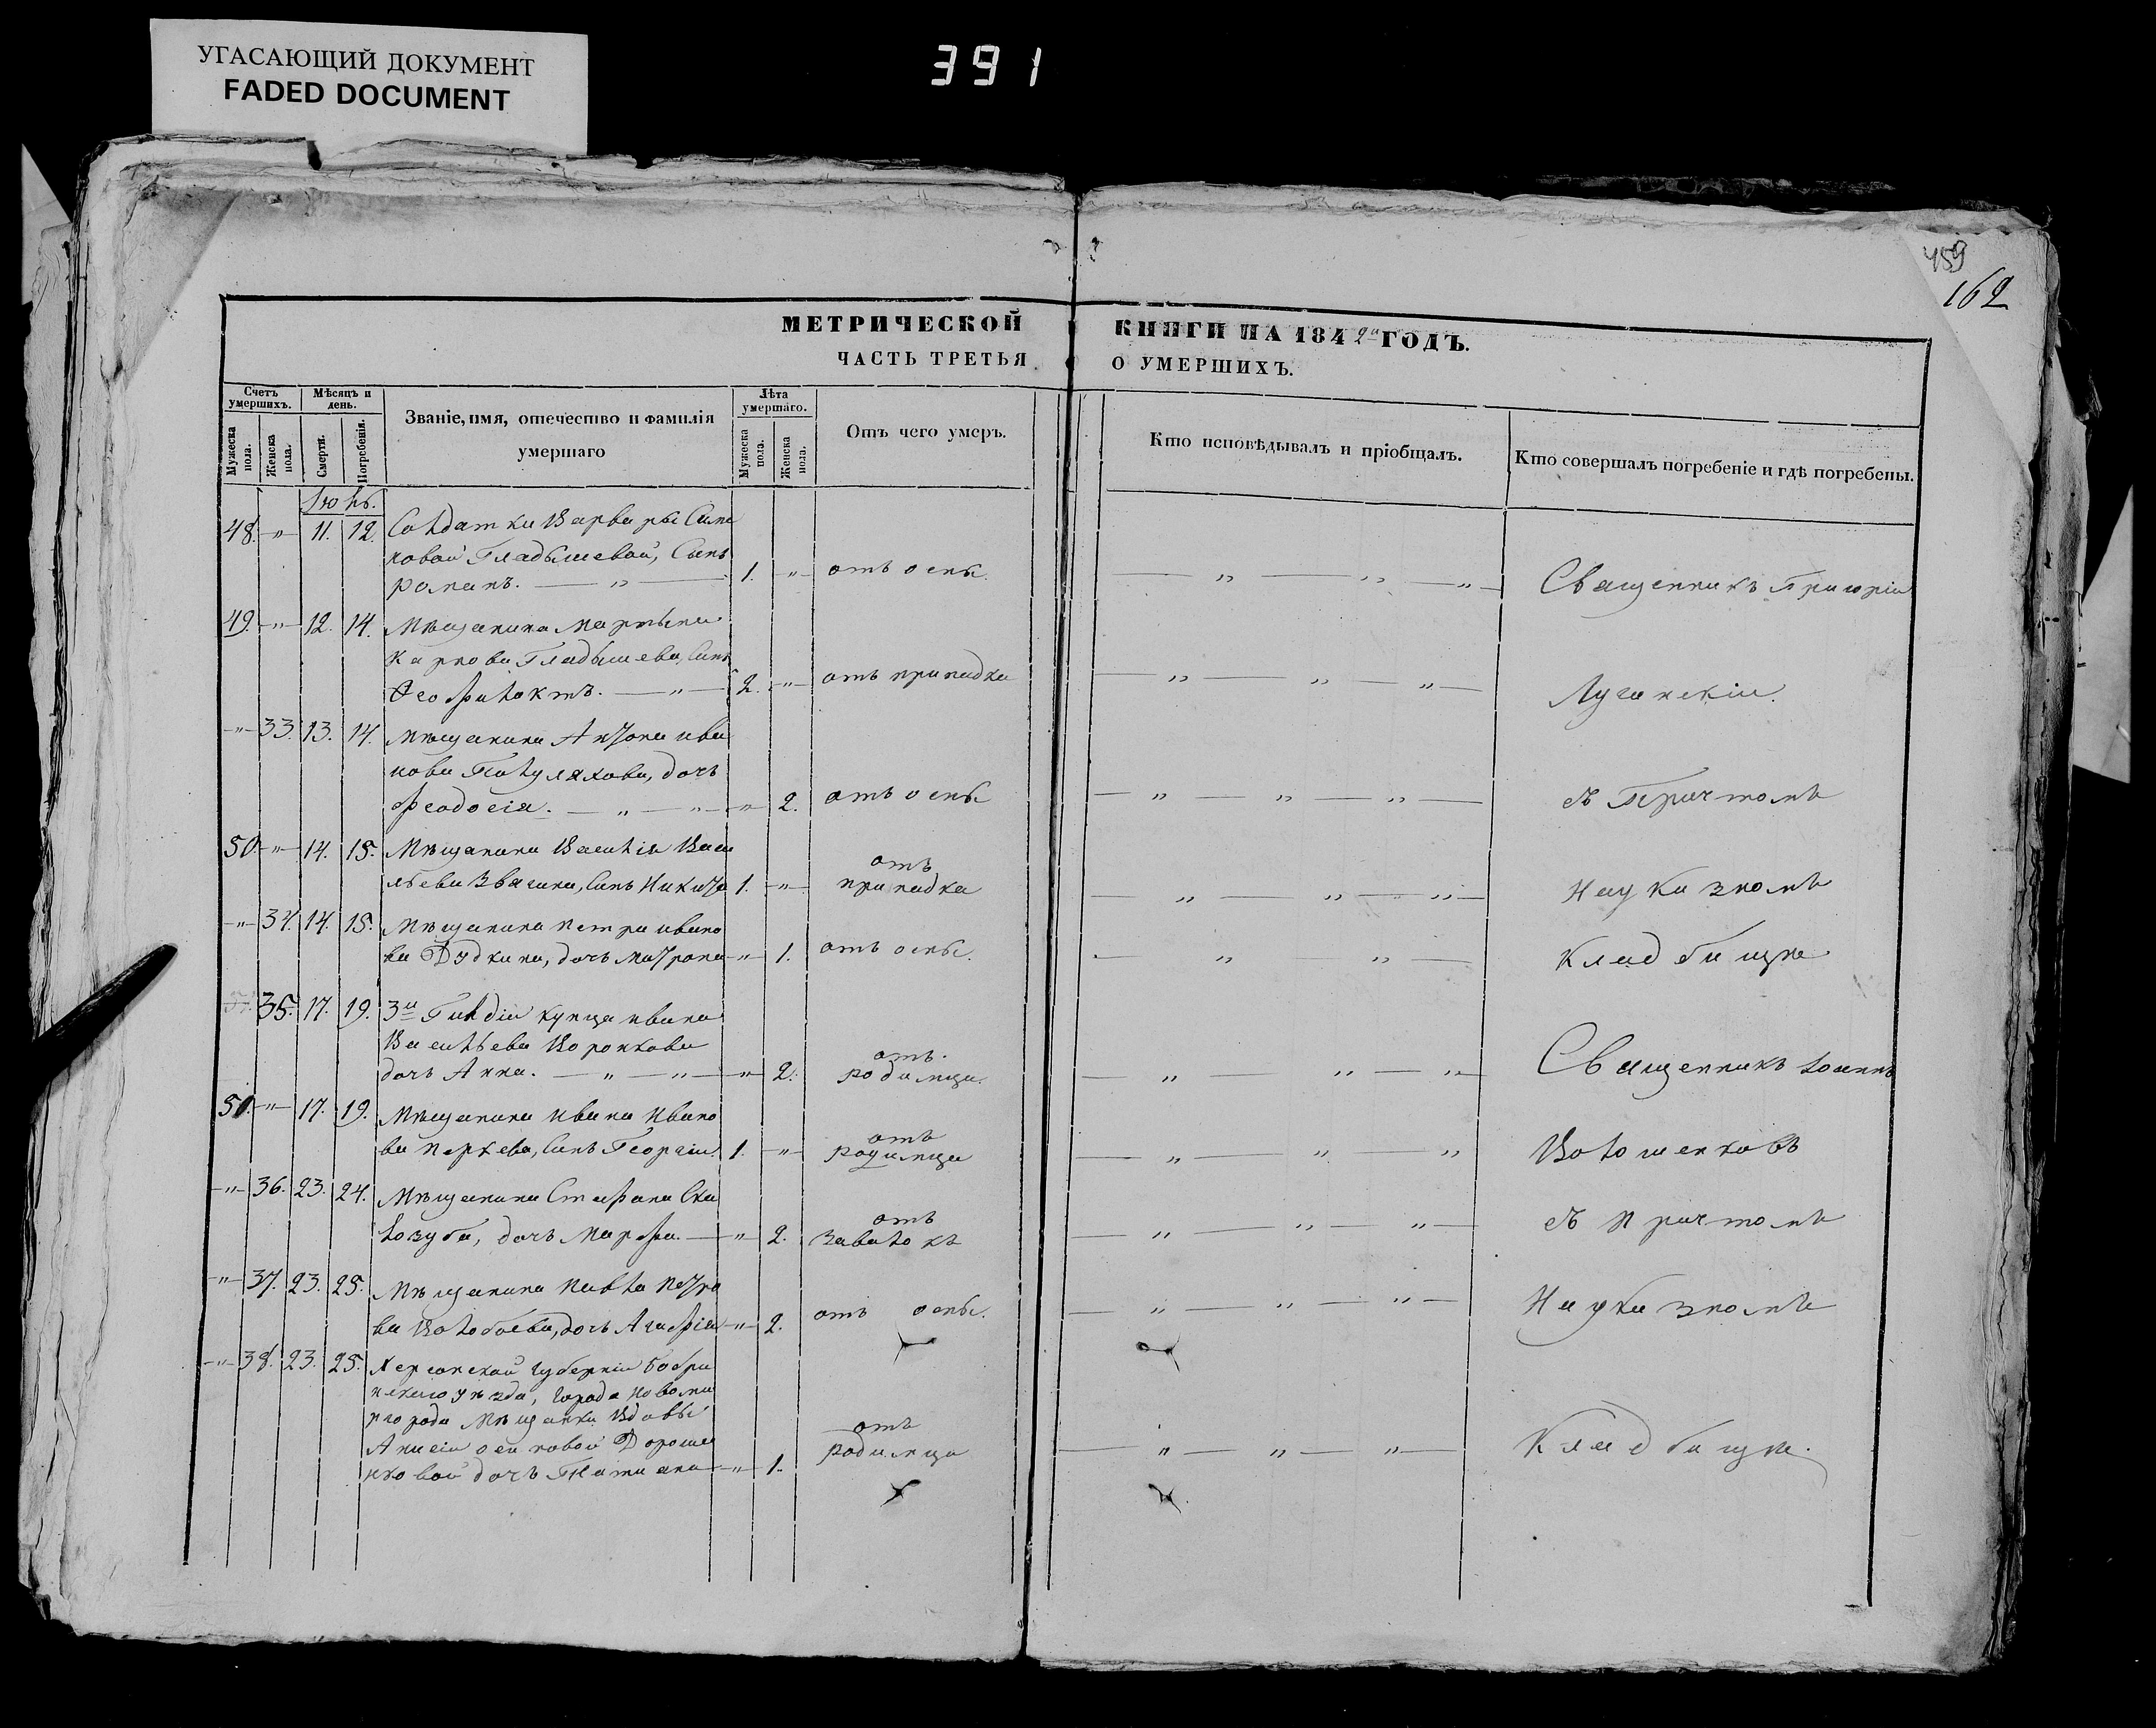 УГАСАЮЩИЙ ДОКУМЕНТ
FADED DOCUMENT
391
459
162
МЕТРИЧЕСКОЙ КНИГИ НА 1842й ГОДЪ.
ЧАСТЬ ТРЕТЬЯ О УМЕРШИХЪ.
Счетъ умершихъ.
Мужеска пола.
Женска пола.
Мѣсяцъ и день.
Смерти.
Погребенія.
Званіе, имя, отечество и фамилія умершаго
Лѣта умершаго.
Мужеска пола.
Женска пола.
Отъ чего умеръ.
Кто исповѣдывалъ и пріобщалъ.
Кто совершалъ погребеніе и гдѣ погребены.
Іюнь.
48. " 11. 12. Солдатки Варвары
ковой Гладышевой, Сынъ
Романъ. " 1. " отъ оспы. " " " Священникъ Григорій
49. " 12. 14. Мѣщанина Мартына
Карпова Гладышева, Сынъ
Феофилактъ. " 2. " отъ припадка " " " Луганскій.
" 33. 13. 14. Мѣщанина Антона Ива
нова дочь
Феодосія. " " " 2. отъ оспы " " " съ Причтомъ
50. " 14. 15. Мѣщанина Василія Васи
льева Звягина, Сынъ Никита 1. " отъ припадка " " " " На уКазномъ
" 34. 14. 15. Мѣщанина Петра Ивано
ва Дудкина, дочь Матрона " 1. отъ оспы. " " Кладбищѣ
35. 17. 19. 3й Гилдіи купца Ивана
Васильева Воронкова
дочь Анна. " " " 2. отъ родимца. " " " Священникъ Іоаннъ
51. " 17. 19. Мѣщанина Ивана Ивано
ва Сынъ Георгій. 1. " отъ родимца " " " Волошенковъ
" 36. 23. 24. Мѣщанина Стефана Ска
лозуба, дочь Марфа. " 2. отъ Заволокъ " " " съ Причтомъ
" 37. 23. 25. Мѣщанина Павла Петро
ва дочь Агафія " 2. отъ оспы. " " " На уКазномъ
" 38. 23. 25. Херсонской Губерніи Бобри
нскаго уѣзда, Города Новоми
ргорода Мѣщанки Вдовы
Анисіи Дороше
нковой дочь Татіана " 1. отъ родимца " " " Кладбищѣ.